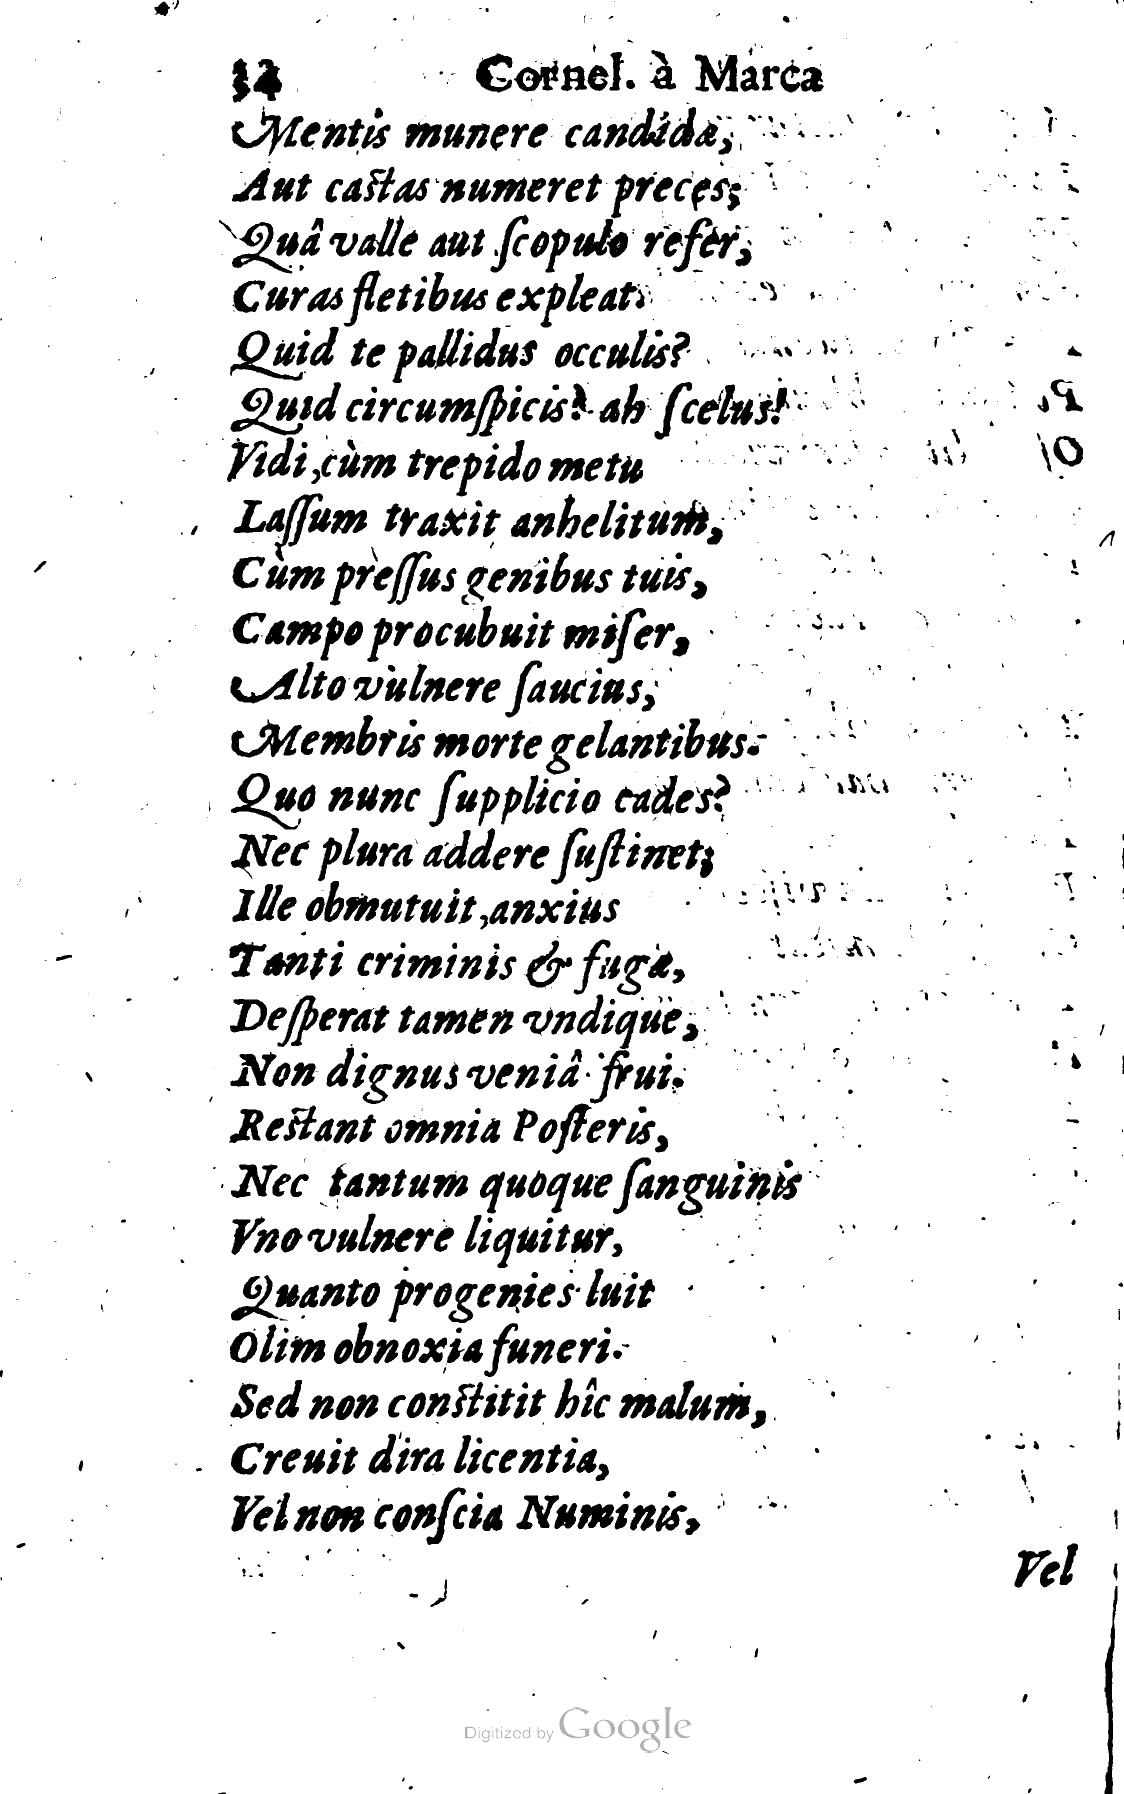 Cornel. à Marca
Mentis munere candidæ,
Aut castas numeret preces;
Quâ valle aut ſcopulo refer,
Curas fletibus expleat.
Quid te pallidus occulis?
Quid circumſpicis? ah ſcelus!
Vidi, cùm trepido metu
Laſſum traxit anhelitum,
Cùm preſſus genibus tuis,
Campo procubuit miſer,
Alto vulnere ſaucius,
Membris morte gelantibus.
Quo nunc ſupplicio cades?
Nec plura addere ſuſtinet;
Ille obmutuit, anxius
Tanti criminis & fugæ,
Deſperat tamen vndique,
Non dignus veniâ frui.
Restant omnia Poſteris,
Nec tantum quoque ſanguinis
Vno vulnere liquitur,
Quanto progenies luit
Olim obnoxia funeri.
Sed non constitit hîc malum,
Creuit dira licentia,
Vel non conſcia Numinis,
Vel
Digitized by Google